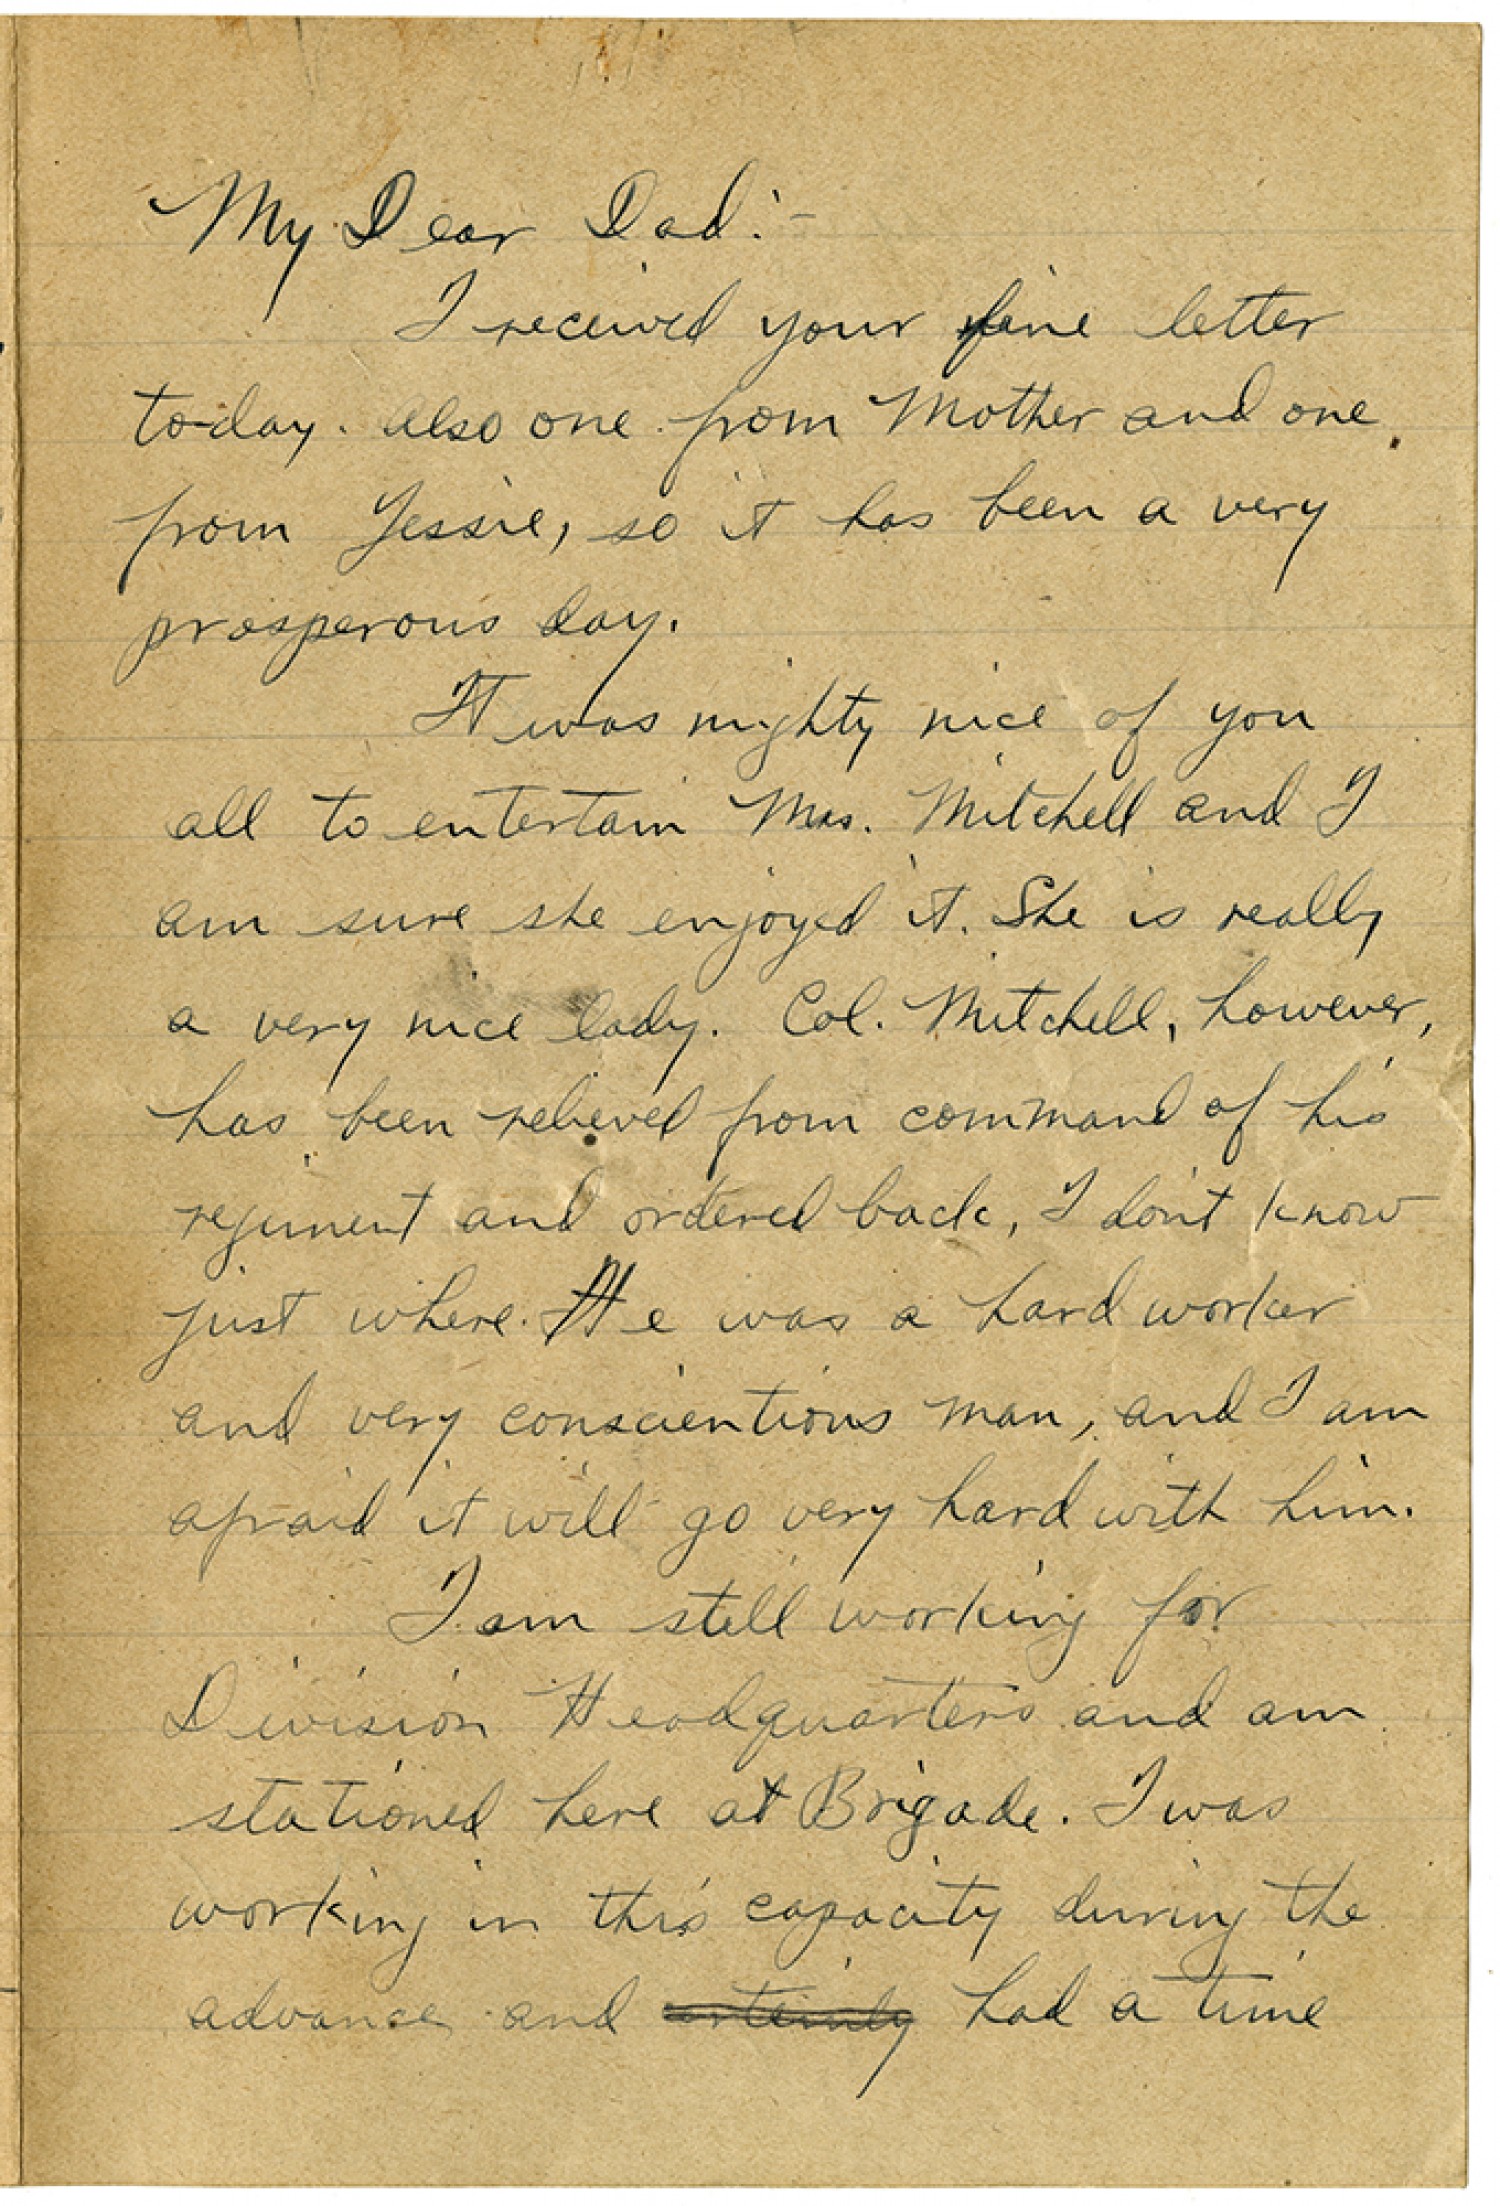 My Dear Dad:-
I received your fine letter
to-day. Also one from Mother and one
from Jessie, so it has been a very
prosperous day.
It was mighty nice of you
all to entertain Mrs. Mitchell and I
am sure she enjoyed it. She is really
a very nice lady. Col. Mitchell, however,
has been relieved from command of his
regiment and ordered back, I don't know
just where. He was a hard worker
and very conscientious man, and I am
afraid it will go very hard with him.
I am still working for
Division Headquarters and am
stationed here at Brigade. I was
working in this capacity during the
advance and certainly had a time